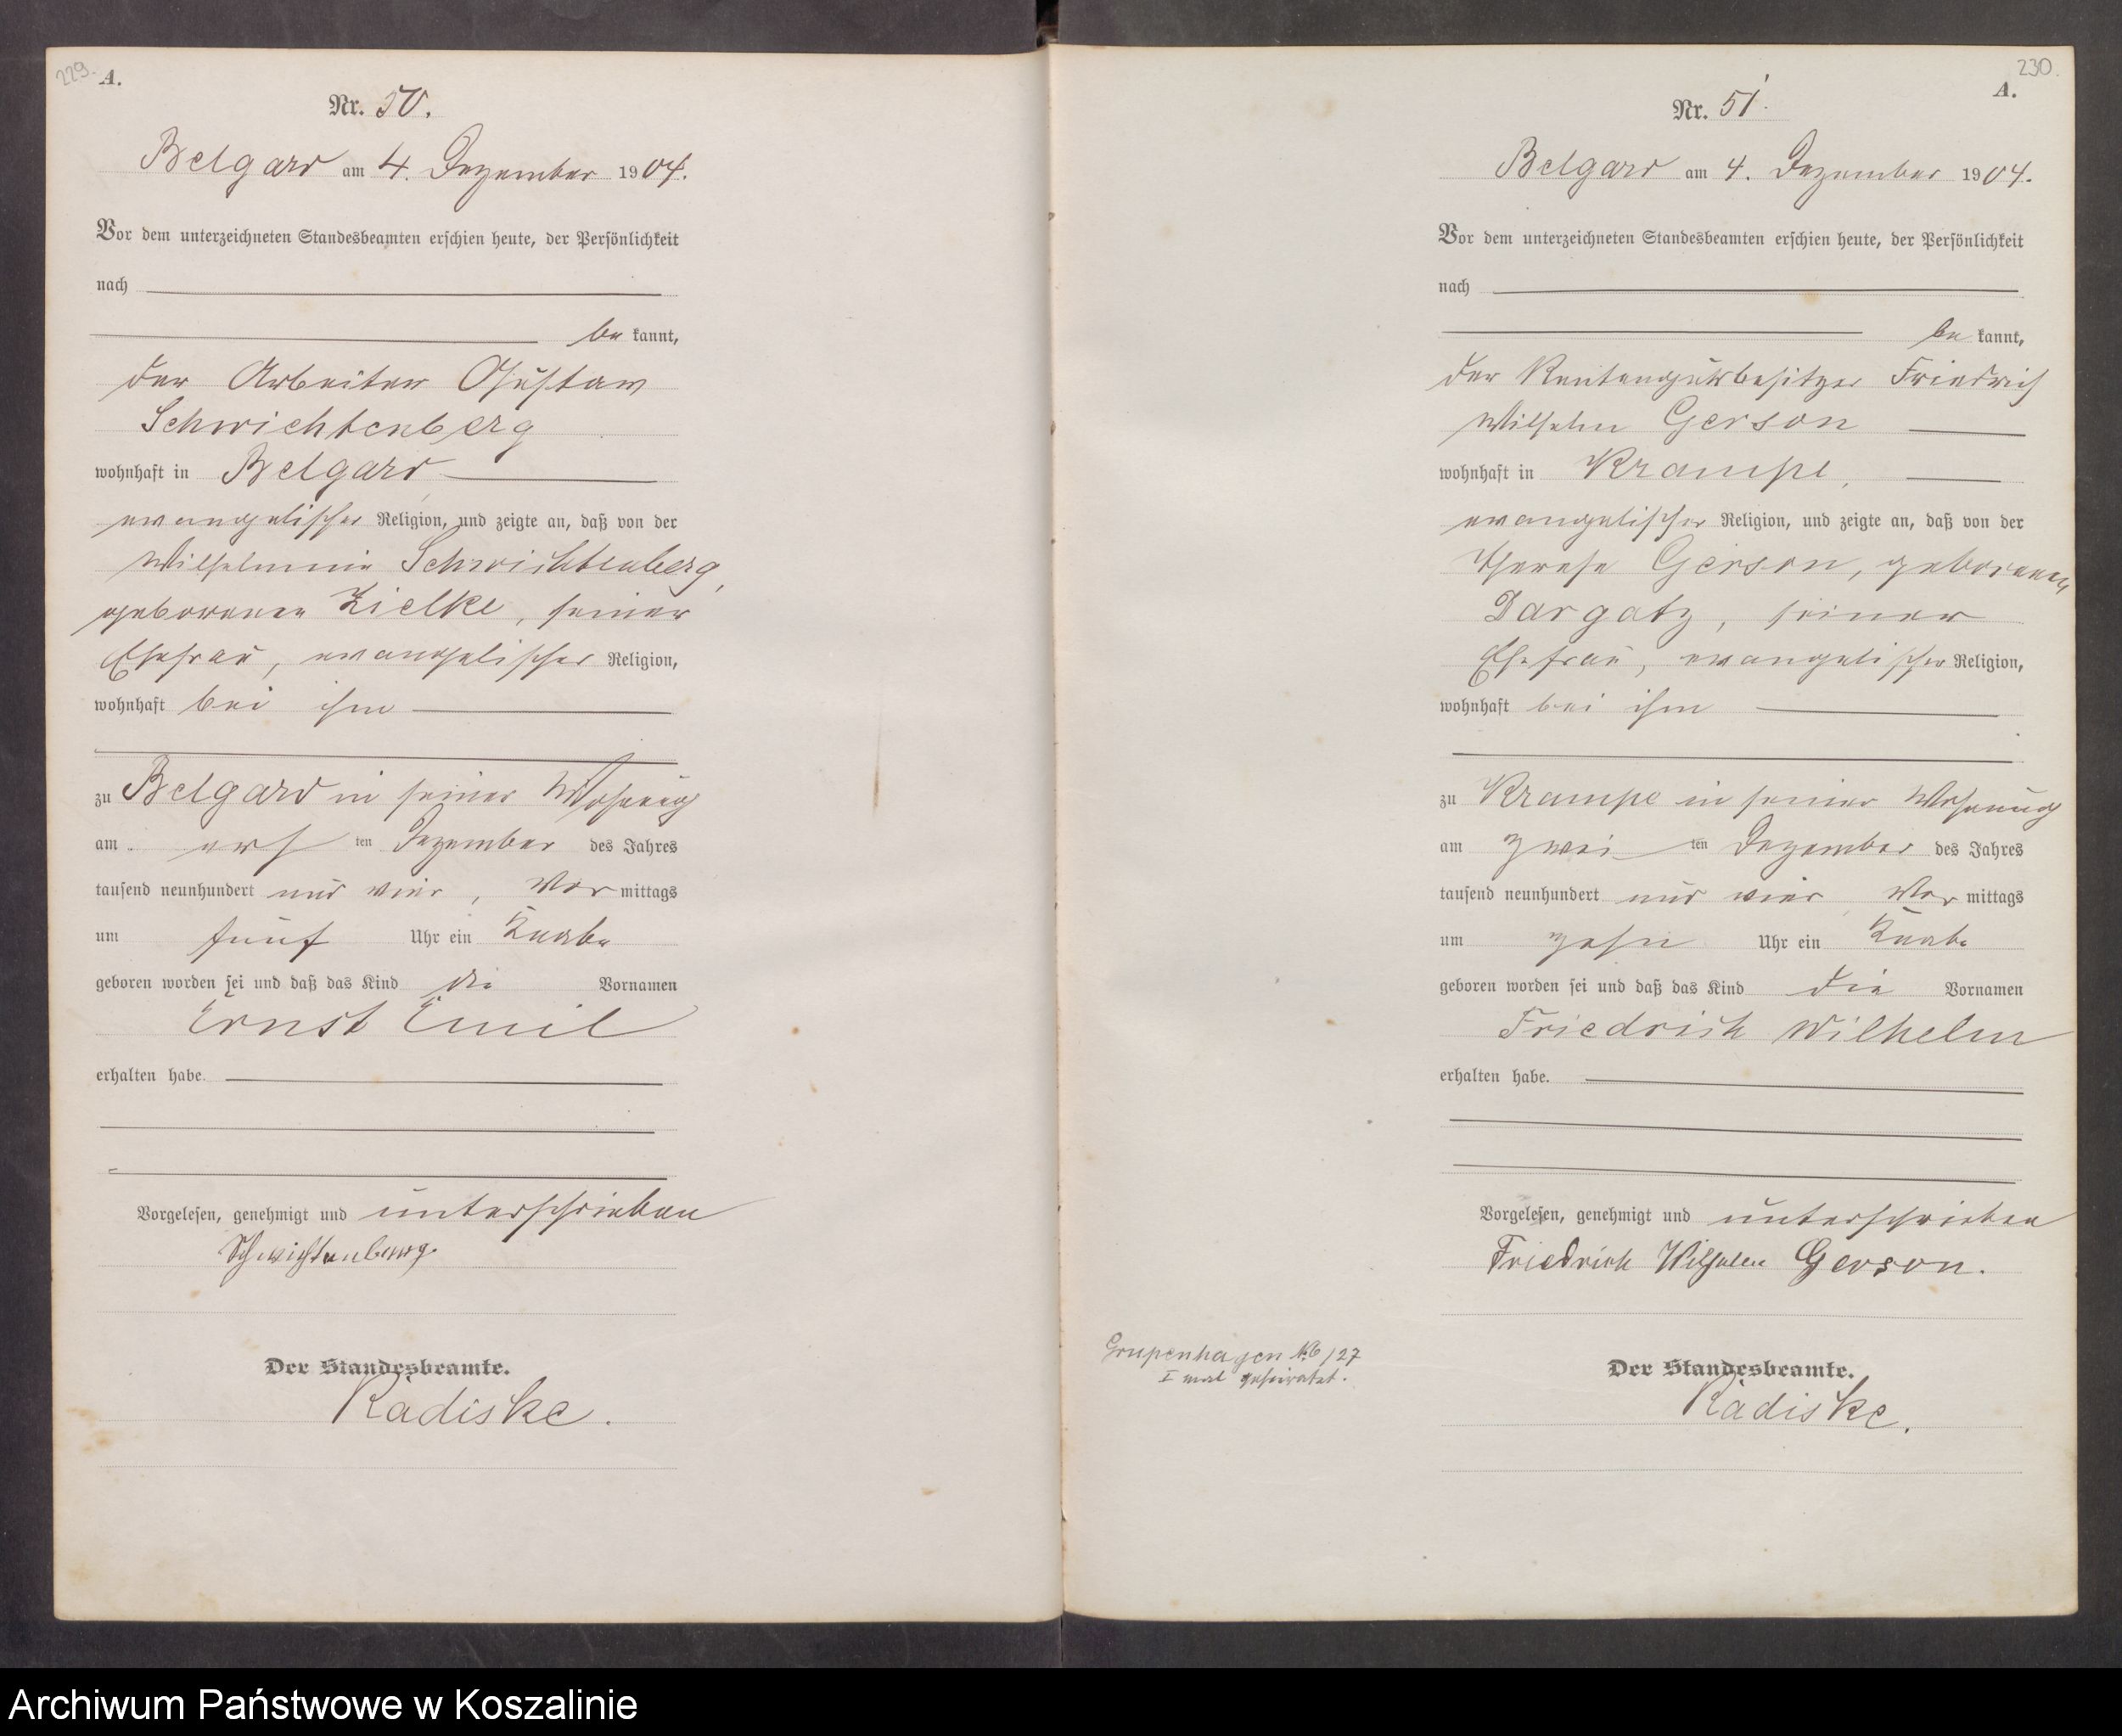 229.
A.
Nr. 50.
Belgard am 4. Dezember 1904.
Vor dem unterzeichneten Standesbeamten erschien heute, der Persönlichkeit
nach
be kannt,
der Arbeiter Gustav
Schwichtenberg
wohnhaft in Belgard
evangelischer Religion, und zeigte an, daß von der
Wilhelmine Schwichtenberg,
geborenen Zielke, seiner
Ehefrau, evangelischer Religion,
wohnhaft bei ihm
zu Belgard in seiner Wohnung
am ersten Dezember des Jahres
tausend neunhundert und vier, Vormittags
um fünf Uhr ein Knabe
geboren worden sei und daß das Kind die Vornamen
Ernst Emil
erhalten habe.
Vorgelesen, genehmigt und unterschrieben
Schwichtenberg.
Der Standesbeamte.
Radiske.
230.
A.
Nr. 51.
Belgard am 4. Dezember 1904.
Vor dem unterzeichneten Standesbeamten erschien heute, der Persönlichkeit
nach
be kannt,
der Rentengutsbesitzer Friedrich
Wilhelm Gerson
wohnhaft in Krampe,
evangelischer Religion, und zeigte an, daß von der
Therese Gerson, geborenen
Dargatz, seiner
Ehefrau, evangelischer Religion,
wohnhaft bei ihm
zu Krampe in seiner Wohnung
am zweiten Dezember des Jahres
tausend neunhundert und vier, Vormittags
um zehn Uhr ein Knabe
geboren worden sei und daß das Kind die Vornamen
Friedrich Wilhelm
erhalten habe.
Vorgelesen, genehmigt und unterschrieben
Friedrich Wilhelm Gerson.
Grupenhagen № 6/27
I mal geheiratet.
Der Standesbeamte.
Radiske.
Archiwum Państwowe w Koszalinie